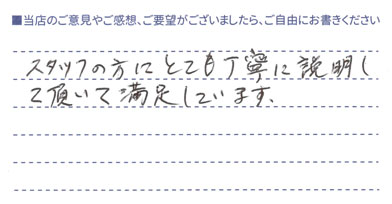 ■当店のご意見やご感想、ご要望がございましたら、ご自由にお書きください
スタッフの方にとても丁寧に説明し
て頂いて満足しています。